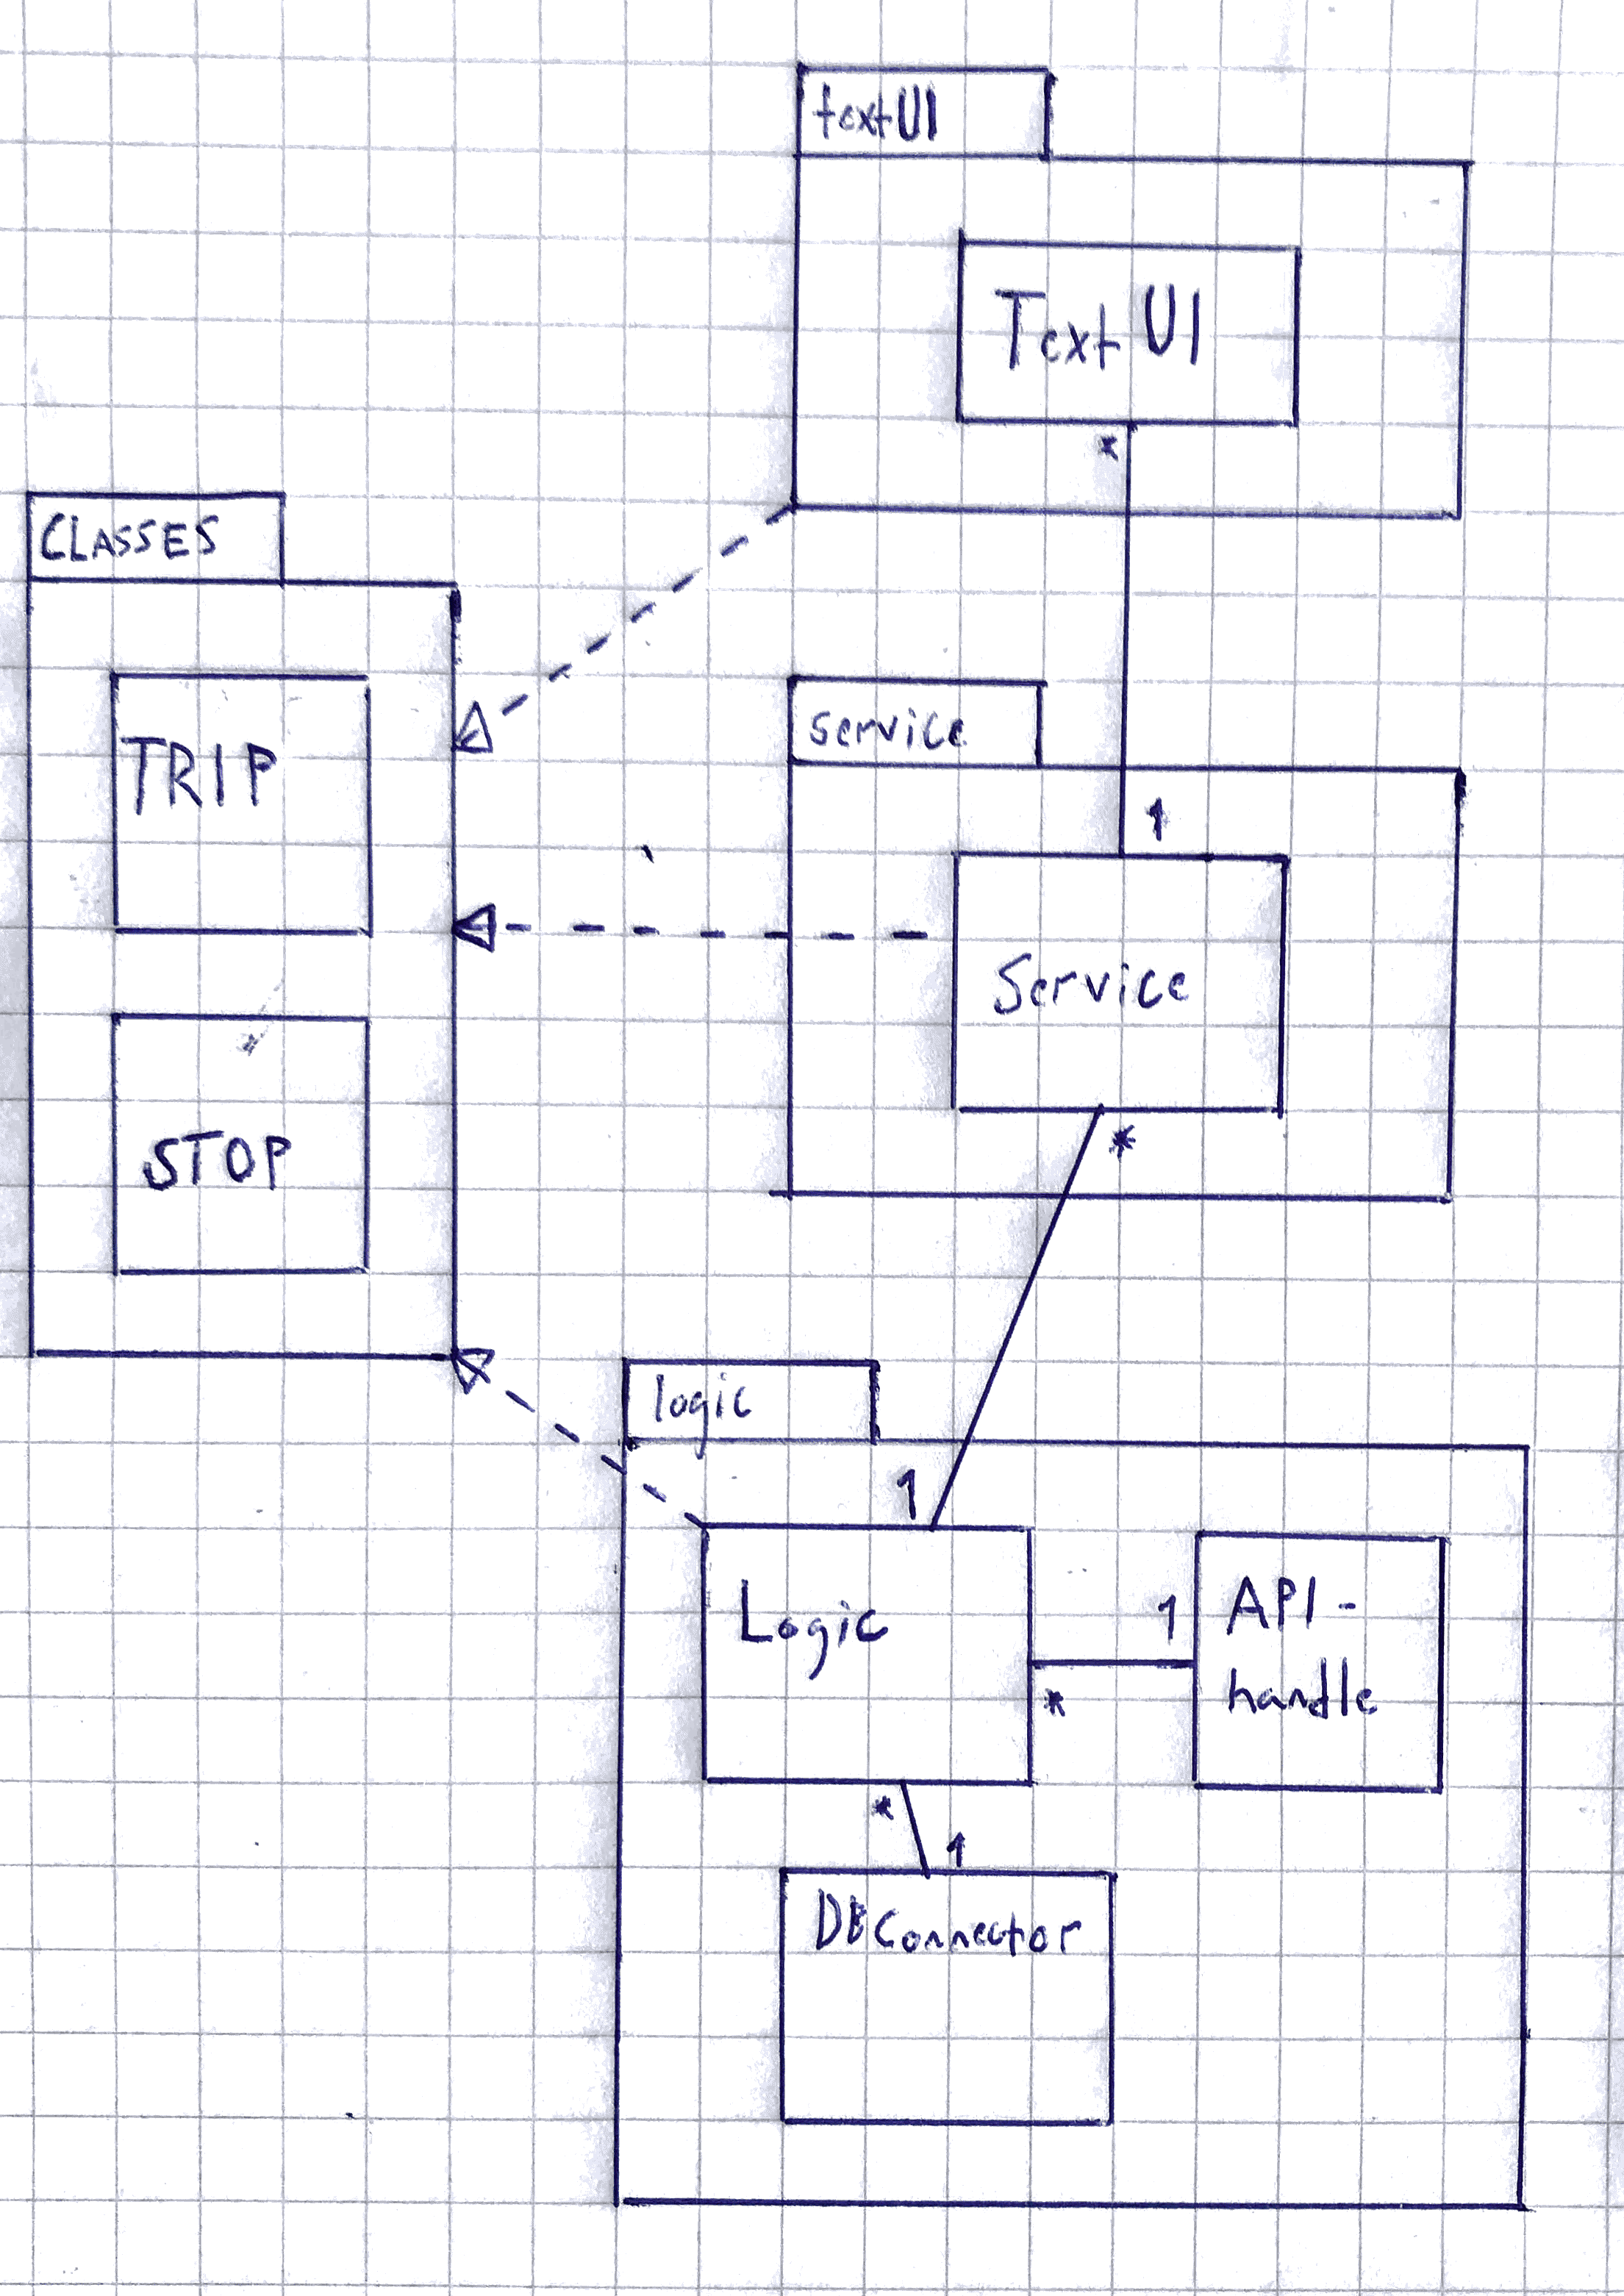 textUI
Text UI
*
CLASSES
TRIP
STOP
service
1
Service
*
logic
1
Logic
1
*
API-
handle
*
1
DBConnector